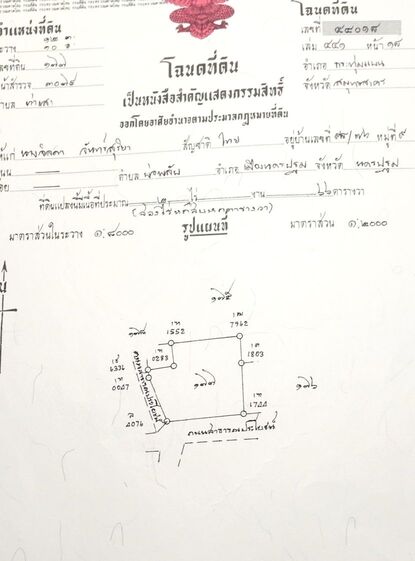 ตำแหน่งที่ดิน
โฉนดที่ดิน
เลขที่ ๙๔๐๑๘
ระวาง
เล่ม ๔๔๑ หน้า ๑๘
เลขที่ดิน ๑๗๗
อำเภอ กระทุ่มแบน
หน้าสำรวจ ๓๐๗๕
จังหวัด สมุทรสาคร
ตำบล ท่าเสา
โฉนดที่ดิน
เป็นหนังสือสำคัญแสดงกรรมสิทธิ์
ออกโดยอาศัยอำนาจตามประมวลกฎหมายที่ดิน
ให้แก่ สัญชาติ ไทย อยู่บ้านเลขที่ หมู่ที่ ๙
ถนน ตำบล อำเภอ เมืองนครปฐม จังหวัด นครปฐม
ที่ดินแปลงนี้มีเนื้อที่ประมาณ ๒ ไร่ งาน ๖๖ ตารางวา
(สองไร่หกสิบหกตารางวา)
มาตราส่วนในระวาง ๑:๔๐๐๐ รูปแผนที่ มาตราส่วน ๑:๒๐๐๐
น
๑๗๕
7962
1552
0283
1803
6336
๑๗๗
๑๗๖
0047
1744
4076
ถนนสาธารณประโยชน์